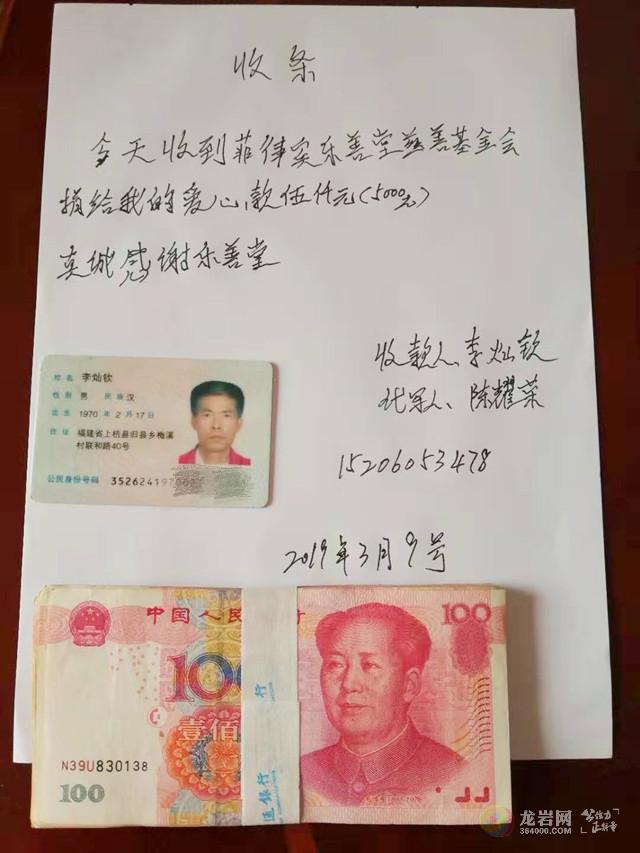 收条
今天收到菲律宾乐善堂慈善基金会
捐给我的爱心款伍仟元(5000元)
真诚感谢乐善堂
收款人、李灿钦
代写人、陈耀荣
15206053478
2019年3月9号
姓名 李灿钦
性别 男 民族 汉
出生 1970年2月17日
住址 福建省上杭县旧县乡梅溪
村联和路40号
公民身份号码 352624197
中国人民 行
100
100
壹佰
N39U830138
100
通银行
龙岩网
364000.com
正能量